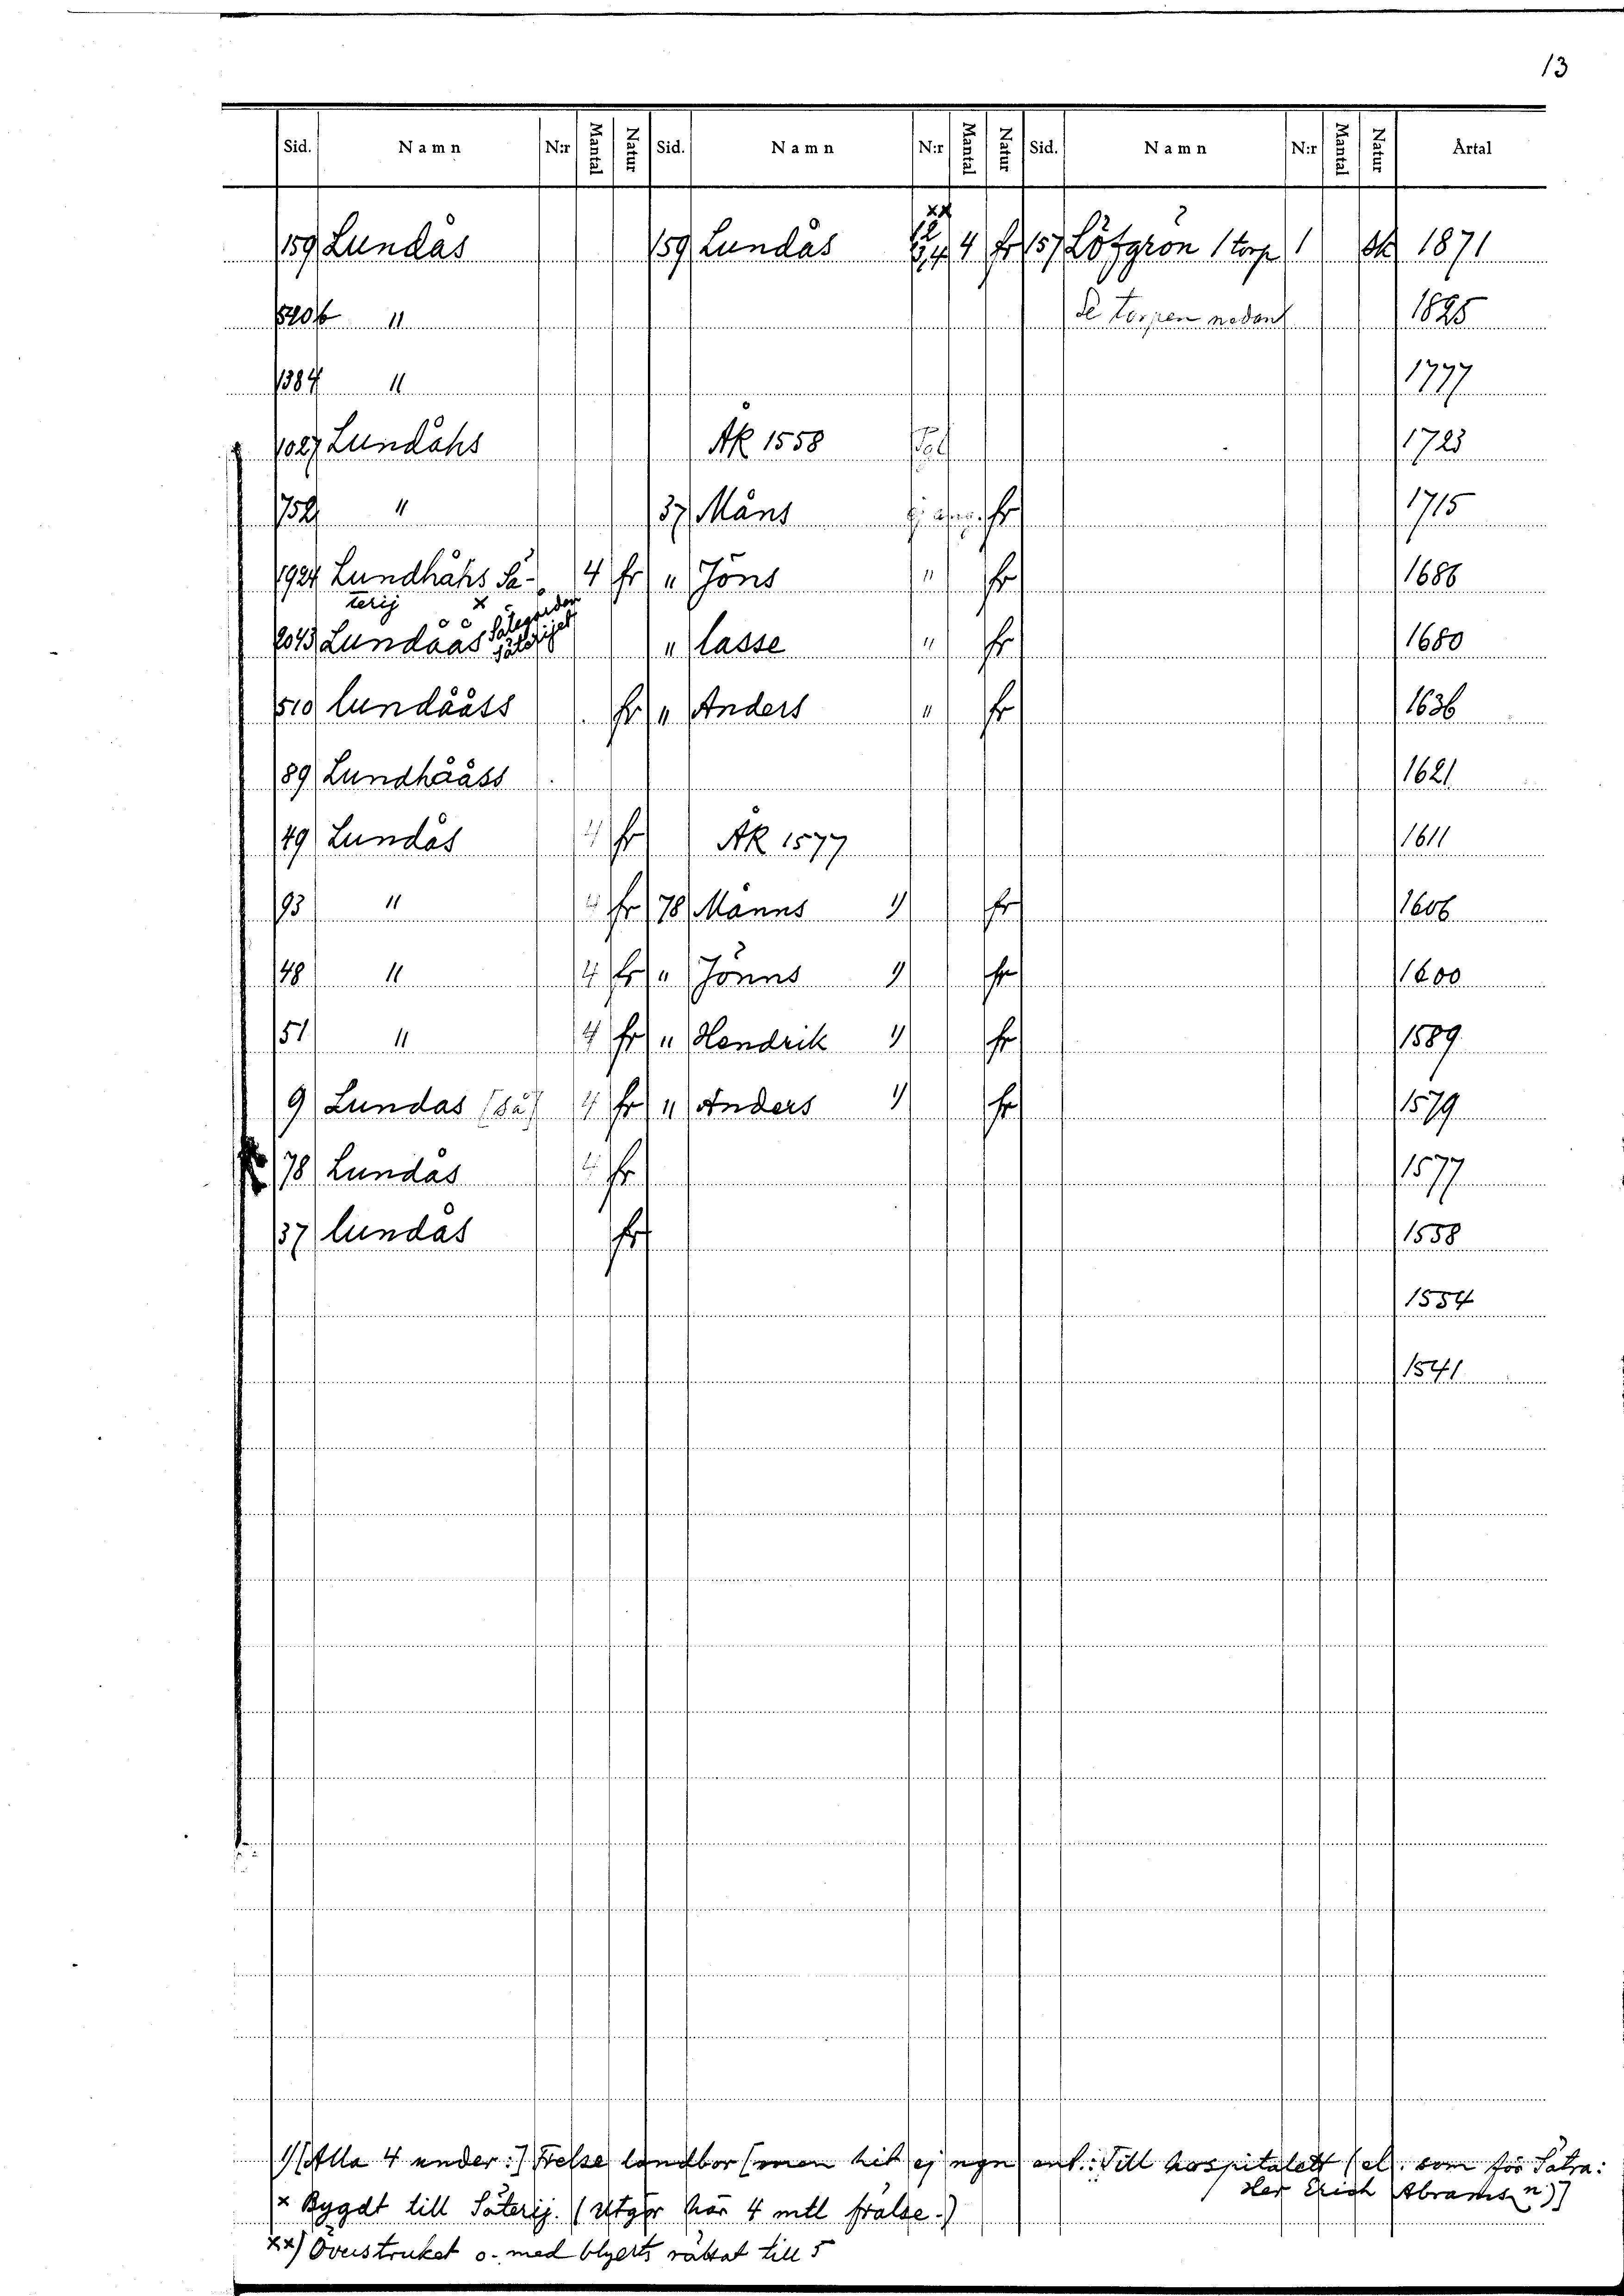 13
Sid. Namn N:r Mantal Natur Sid. Namn N:r Mantal Natur Sid. Namn N:r Mantal Natur Årtal
159 Lundås 159 Lundås xx 12 3,4 4 fr 157 Löfgrön 1 torp 1 sk 1871
540b " Se torpen nedan 1825
1384 " 1777
1027 Lundåhs ÅK 1558 1723
752 " 37 Måns ej ang. fr 1715
1924 Lundhåhs Sä- 4 fr " Jöns " fr 1686
terij x
2043 Lundåås Sätegården Säterijet " lasse " fr 1680
510 lundååss fr " Anders " fr 1636
89 Lundhååss 1621
49 Lundås 4 fr ÅK 1577 1611
93 " 4 fr 78 Månns 1) fr 1606
48 " 4 fr " Jönns 1) fr 1600
51 " 4 fr " Hendrik 1) fr 1589
9 Lundas [så] 4 fr " Anders 1) fr 1579
78 Lundås 4 fr 1577
37 lundås fr 1558
1554
1541
1) [Alla 4 under:] Frelse landbor [men hit ej ngn ant.: Till hospitalett (el. som för Sätra:
Her Erich Abramsn)]
x Bygdt till Säterij. (Utgör här 4 mtl frälse.)
xx) Överstruket o. med blyerts rättat till 5